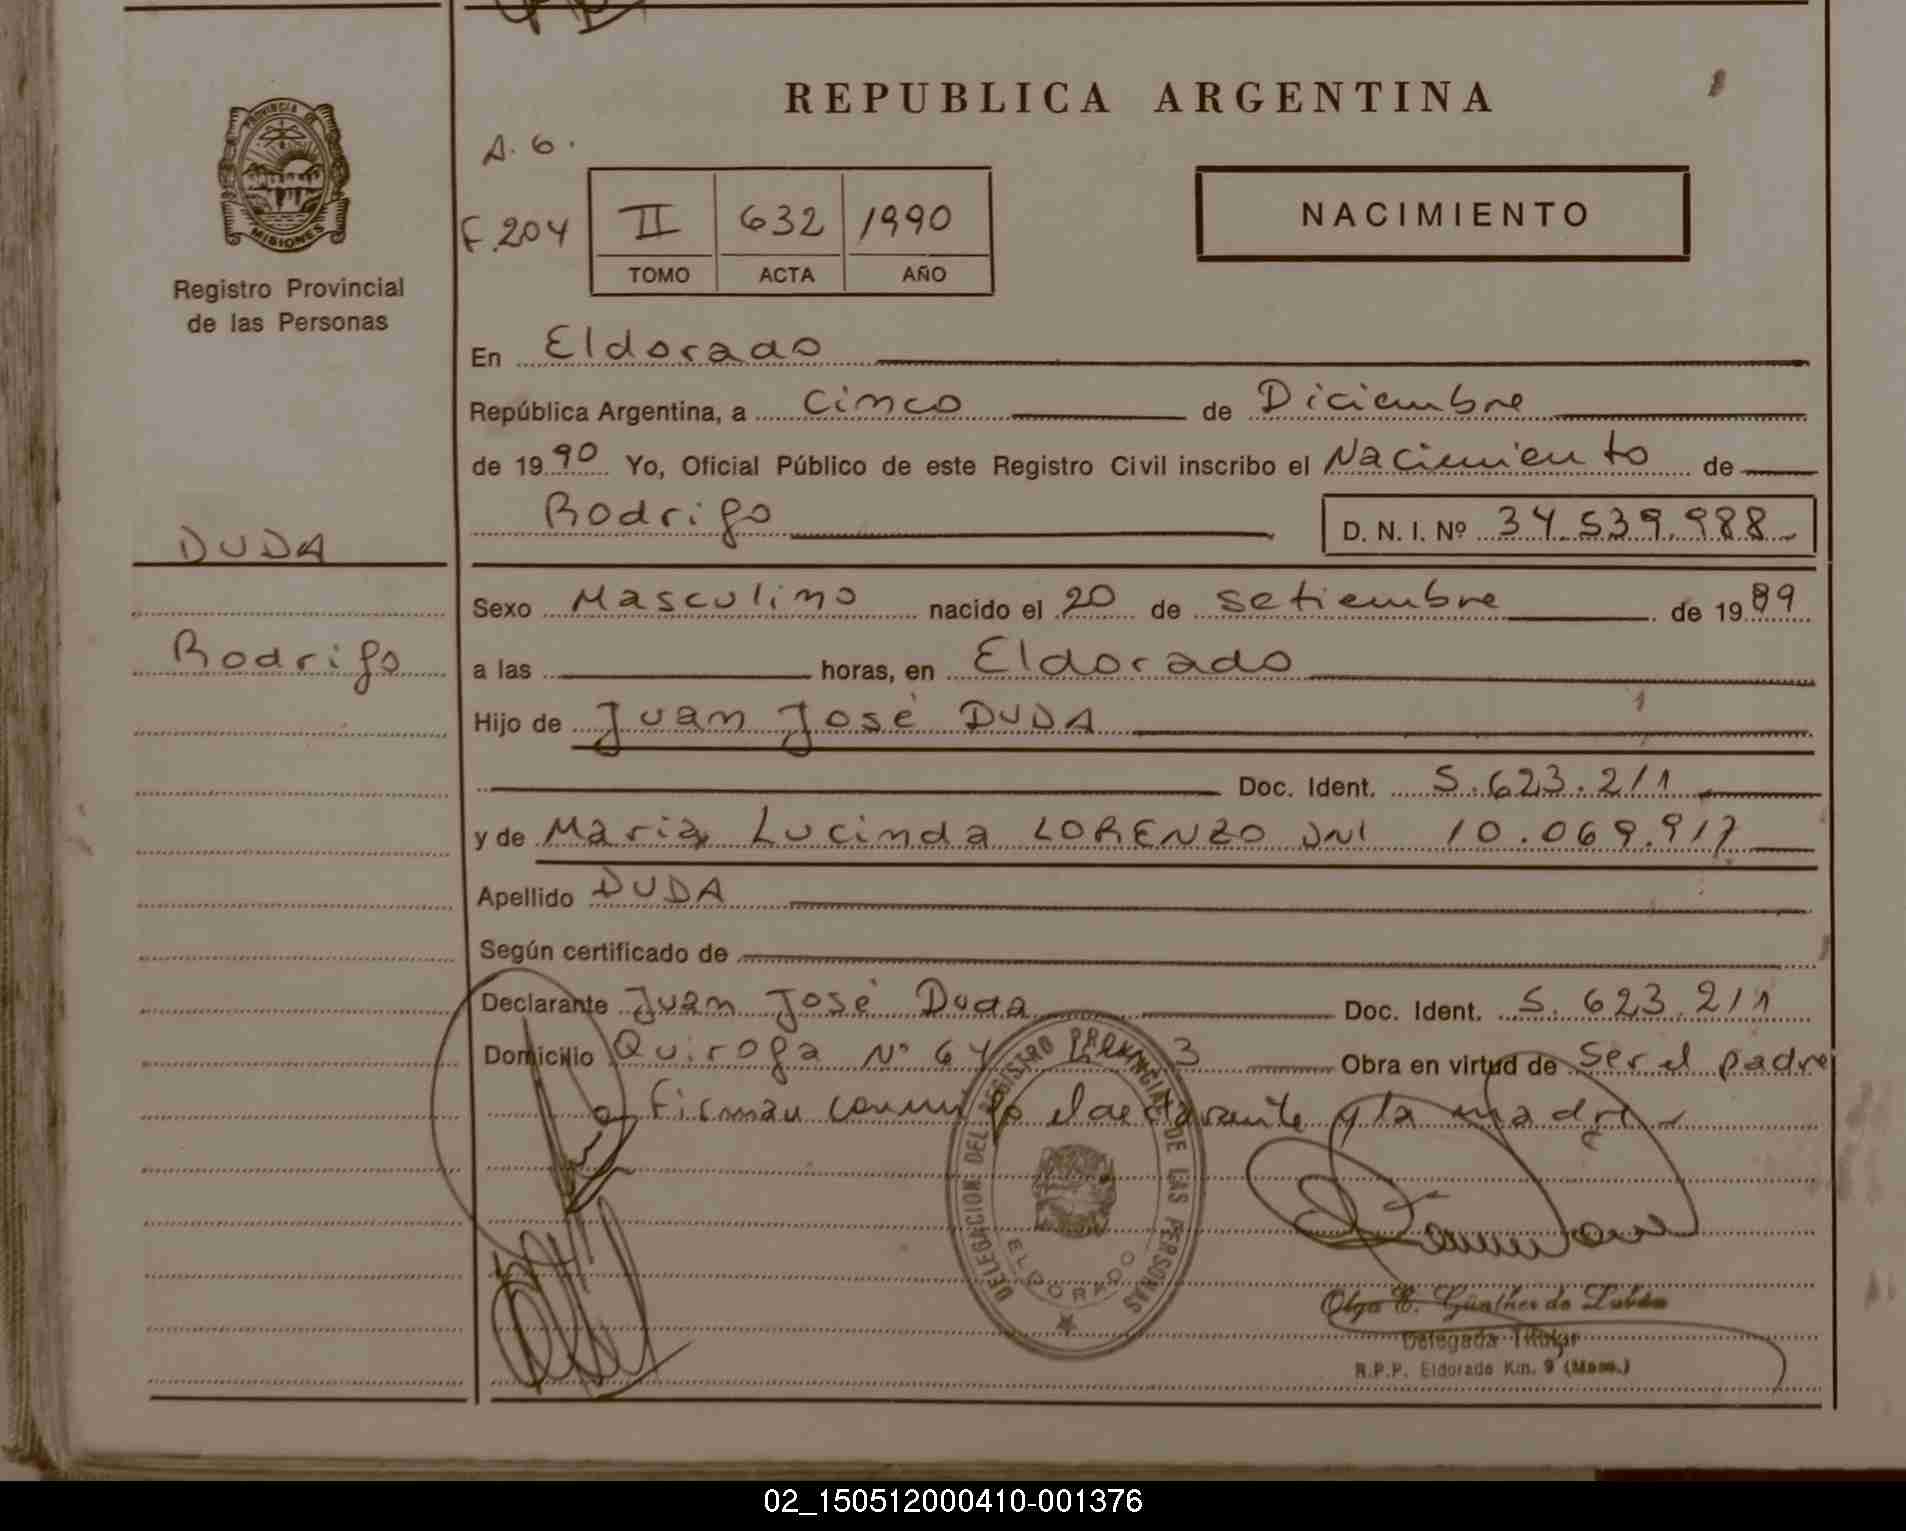 REPUBLICA ARGENTINA
PROVINCIA DE
MISIONES
Registro Provincial
de las Personas
A. 6.
F. 204
II 632 1990
TOMO ACTA AÑO
NACIMIENTO
En Eldorado
República Argentina, a Cinco de Diciembre
de 1990 Yo, Oficial Público de este Registro Civil inscribo el Nacimiento de
Rodrigo D. N. I. Nº 34.539.988
DUDA
Rodrigo
Sexo Masculino nacido el 20 de setiembre de 1989
a las horas, en Eldorado
Hijo de Juan José DUDA
Doc. Ident. 5.623.211
y de Maria Lucinda LORENZO DNI 10.069.917
Apellido DUDA
Según certificado de
Declarante Juan José Duda Doc. Ident. 5.623.211
Domicilio Quiroga Nº 64 3 Obra en virtud de Ser el padre
Firman conmigo el declarante y la madre
DELEGACION DEL REGISTRO PROVINCIAL DE LAS PERSONAS
ELDORADO
Olga E. Günther de
Delegada Titular
R.P.P. Eldorado Km. 9 (Mnes.)
02_150512000410-001376